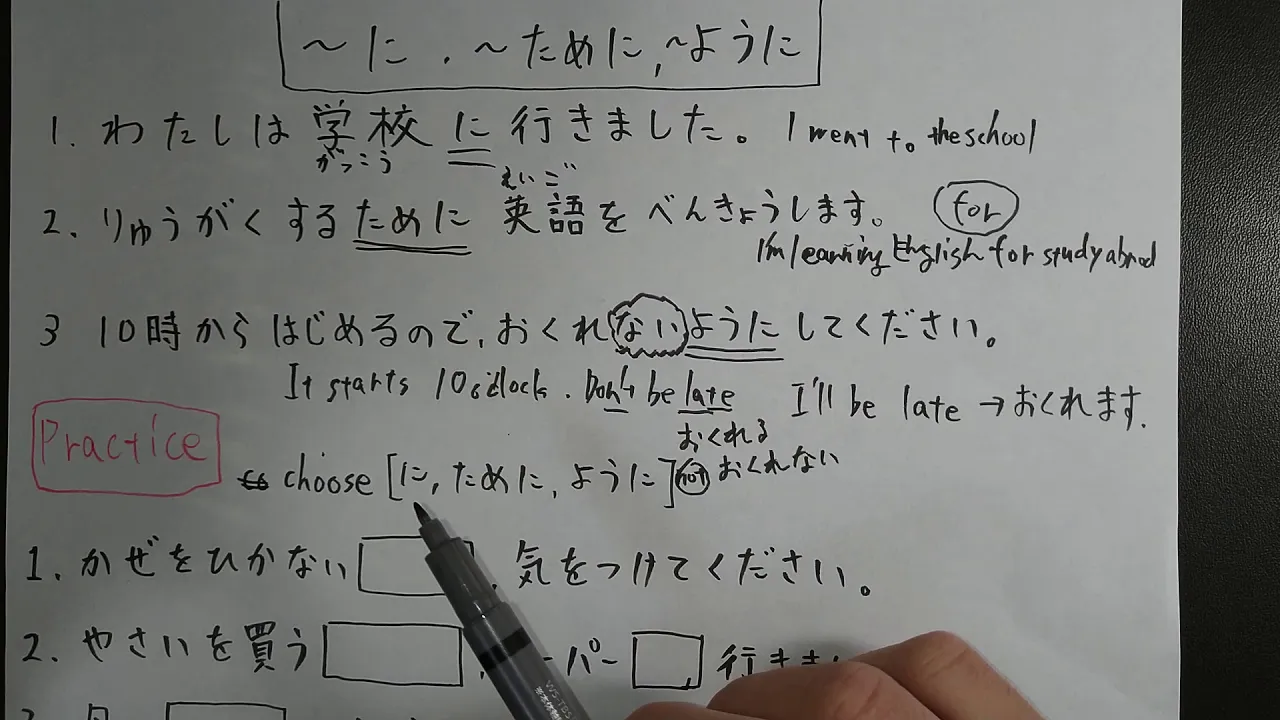 ~に . ~ために, ~ように
1. わたしは学校に行きました。 I went to the school
がっこう
えいご
2. りゅうがくするために 英語をべんきょうします。 for
I'm learning English for study abroad
3 10時からはじめるので, おくれないようにしてください。
It starts 10 o'clock. Don't be late I'll be late → おくれます.
おくれる
Practice
choose [に, ために, ように] not おくれない
1. かぜをひかない , 気をつけてください。
2. やさいを買う ーパー 行きま
3.